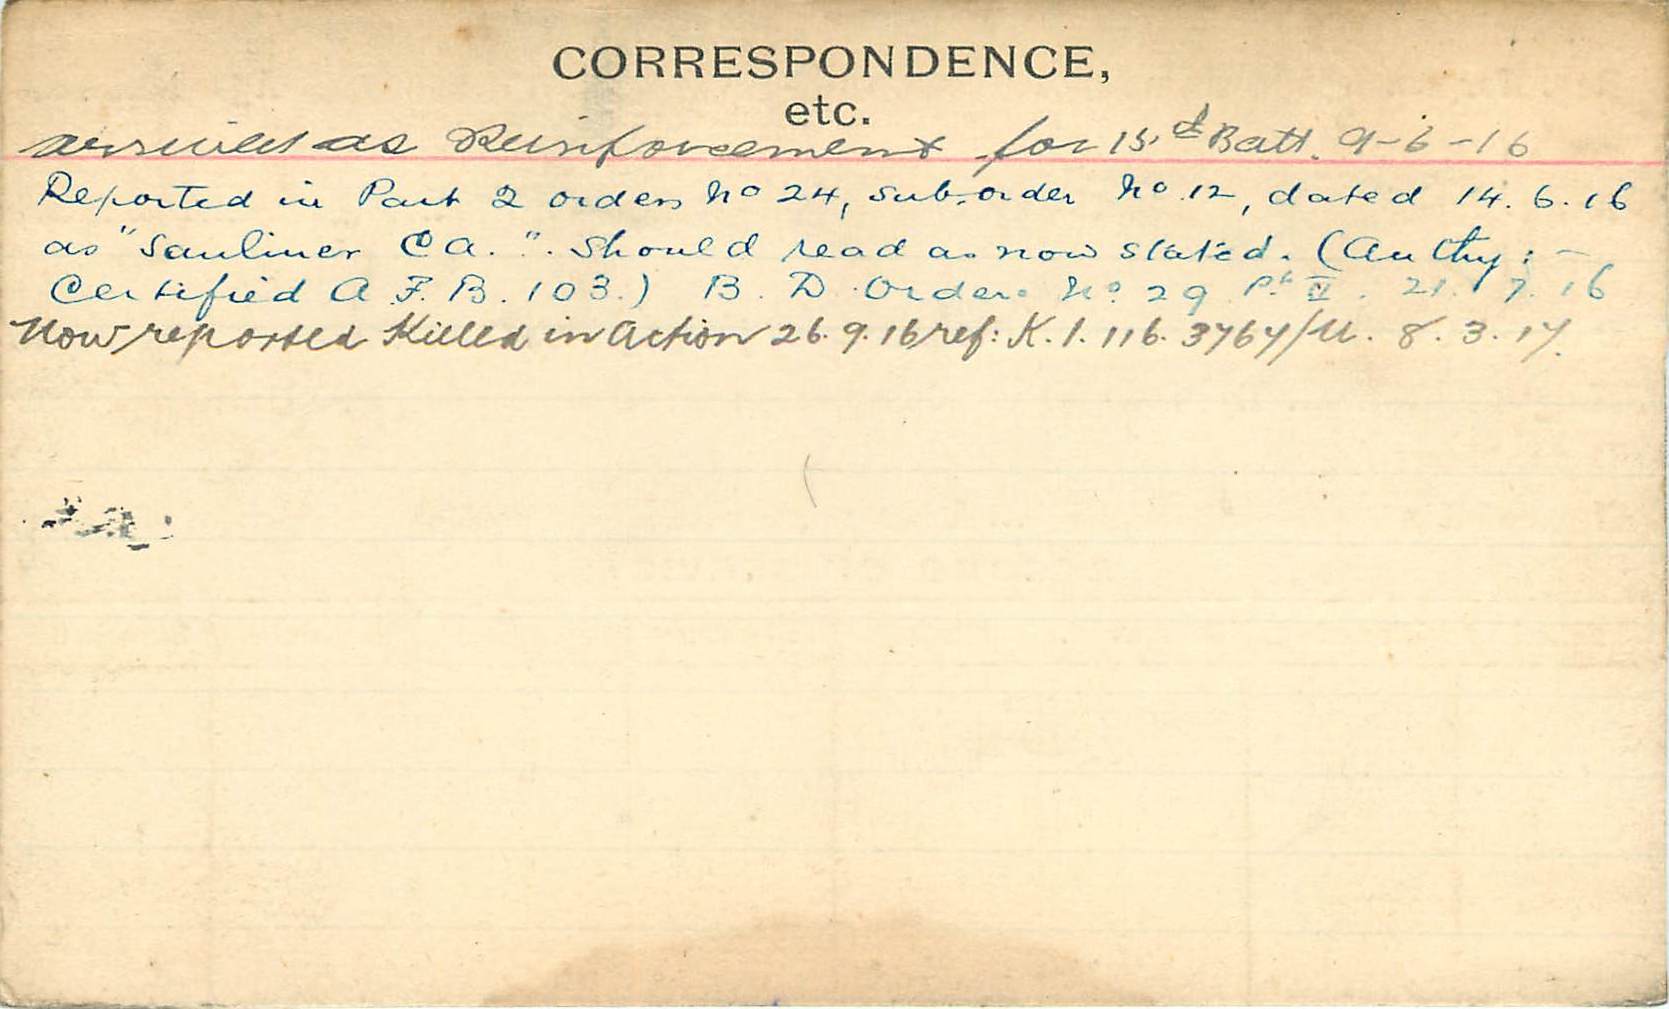 CORRESPONDENCE,
etc.
arrived as Reinforcement for 15 Batt. 9-6-16
Reported in Part 2 orders No 24, sub-order No 12, dated 14.6.16
as "Sauliner C a.". Should read as now stated. (Authy: -
Certified A F. B. 103.) B. D. Orders No. 29 Pt. II. 21. 7. 16
Now reported Killed in Action 26. 9. 16 ref: K. 1. 116. 3764/U. 8. 3. 17.